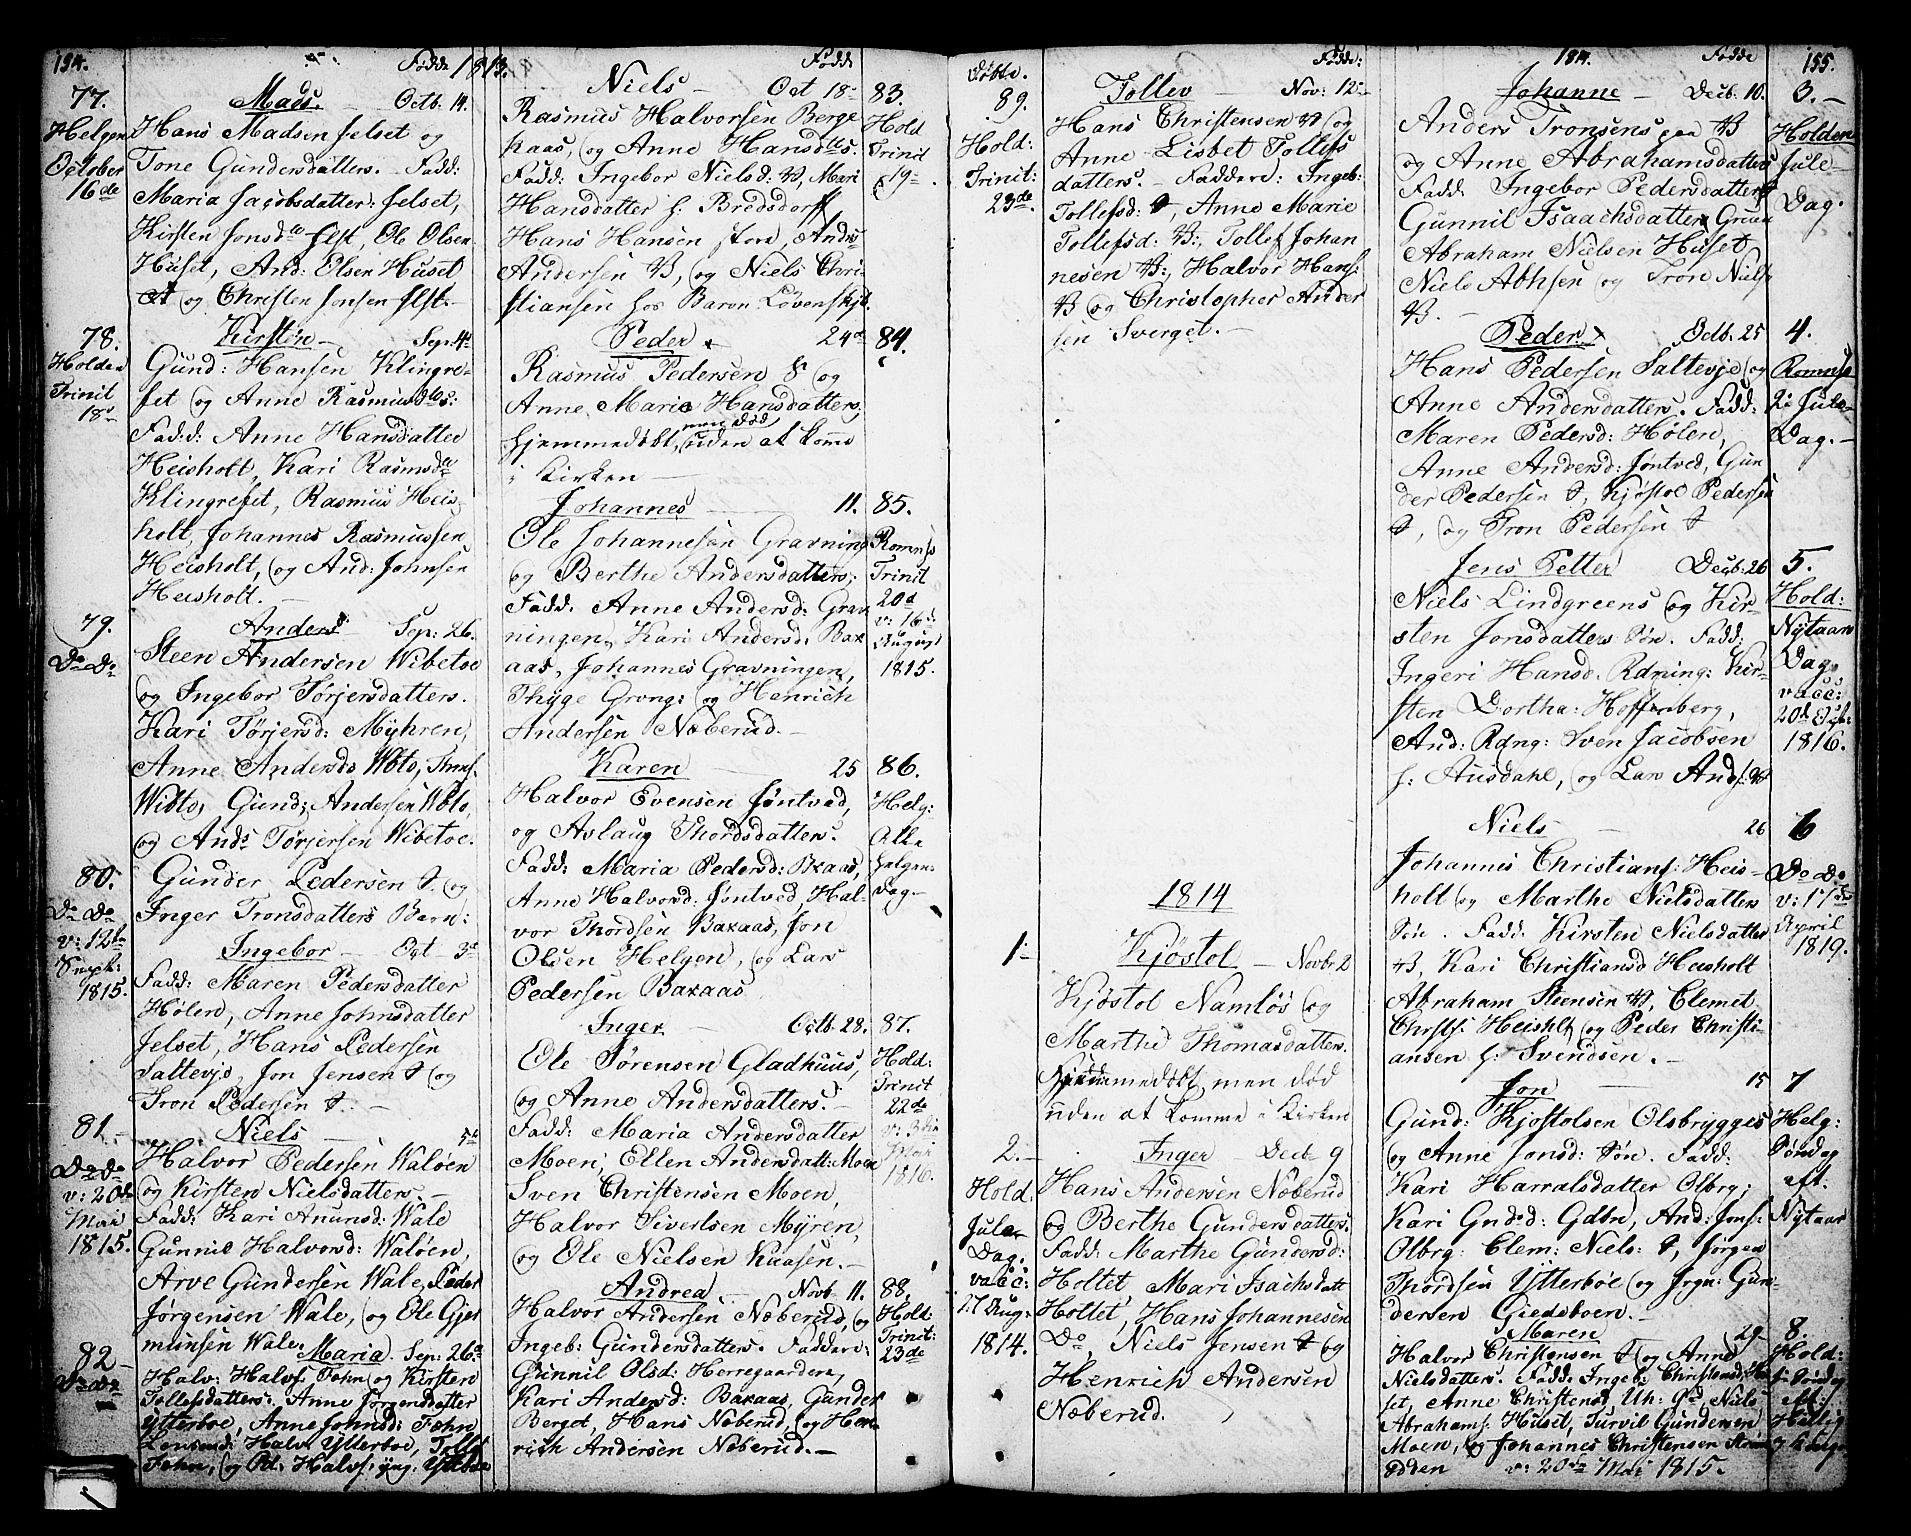 154.
Fødde 1813.
77.
Mads. — Octb. 14.
Helgen
October
16de
Hans Madsen Jelset og
Tone Gundersdatters. Fadd:
Maria Jacobsdatter: Jelset,
Kirsten Jonsd. Jelst, Ole Olsen
Huset, And: Olsen Huset
og Christen Jonsen Jlst.
78.
Kirstine — Sep: 4
Holden
Trinit
18
Gund: Hansen Klingre-
set og Anne Rasmusd:
Fadd: Anne Hansdatter
Heisholt, Kari Rasmsd
Klingreset, Rasmus Heis
holt, Johannes Rasmussen
Heisholt, og And: Johnsen
Heisholt.
79.
Anders — Sep: 26.
Do Do
Steen Andersen Wibetoe
og Ingebor Tørjersdatters.
Kari Tørjersd: Myhren,
Anne Andersd Wbto,
Wibto, Gund: Andersen Wbto,
og And: Tørjersen Wibetoe.
80.
Do Do
v: 12te
Sept:
1815.
Gunder Pedersen og
Inger Tronsdatters Barn:
Ingebor — Oct 3
Fadd: Maren Pedersdatter
Hølen, Anne Johnsdatter
Jelset, Hans Pedersen
Saltevje, Jon Jensen og
Tron Pedersen
81.
Niels — 5
Do Do
v: 20de
Mai
1815.
Halvor Pedersen Waløen
og Kirsten Nielsdatters.
Fadd: Kari Anunsd: Wale
Gunnil Halvorsd: Waløen,
Arve Gundersen Wale, Peder
Jørgensen Wale, og Ole Gjer
munsen Wale.
82
Maria. Sep: 26
Do Do
Halv: Halvs: Fohn og Kirsten
Tollefsdatters: Anne Jørgensdatter
Ytterboe, Anne Johnsd: Fohn
Halv: Ytterboe, Tollef
Fohn, og Pd: Halvs: yng. Ytterboe
Fødd
Niels — Oct 18
83.
Hold
Trinit
19
Rasmus Halvorsen Berge
haas, og Anne Hansdtrs.
Fadd: Ingebor Nielsd: Mari
Hansdatter h: Bredsdorff
Hans Hansen store, Anders
Andersen og Niels Chri-
stiansen hos Baron Løvenskjold
Peder 24
84.
Rasmus Pedersen og
Anne Marie Hansdatters,
men død
hjemmedøbt, uden at komme
i Kirken
Johannes — 11.
85.
Romnes
Trinit
20d
v: 16
August
1815.
Ole Johannesen Gravning
og Berthe Andersdatters;
Fadd: Anne Andersd: Grav
ningen, Kari Andersd: Bax
aas, Johannes Gravningen,
Thyge Grvng: og Henrich
Andersen Næberud.
Karen — 25
86.
Helg:
Alle
helgen
Dag
Halvor Evensen Jøntved,
og Aslaug Thordsdatters.
Fadd: Maria Pedersd: Baxaas,
Anne Halvorsd: Jøntved, Hal-
vor Thordsen Baxaas, Jon
Olsen Helgen, og Lars
Pedersen Baxaas
Inger — Octb. 28.
87.
Hold:
Trinit
22de
1816.
Ole Sørensen Gladhuus,
og Anne Andersdatters.
Fadd: Maria Andersdatter
Moen, Ellen Andersdatt: Moen
Sven Christensen Moen,
Halvor Sivertsen Myren,
og Ole Nielsen Kaasen.
Andrea. Novb. 11.
88.
Hold
Trinit:
23de
Halvor Andersen Næberud, og
Ingeb: Gundersdatters. Faddere:
Gunnil Olsd: Herregaarden,
Kari Andersd: Baxaas, Gunder
Berget, Hans Næberud, og Hen-
rich Andersen Næberud.
Døbte.
Fødde:
89.
Hold:
Trinit:
23de
Tollev — Nov: 12
Hans Christensen og
Anne Lisbet Tollefs
datters. Faddere: Ingeb:
Tollefsd: Anne Marie
Tollefsd: Tollef Johan
nesen Halvor Hans:
og Christopher Ander
sen Sverget.
1814
1
Kjøstol — Novbr 2
Kjøstol Namløs og
Marthe Thomasdatters.
hjemmedøbt, men død
uden at komme i Kirken
2.
Inger — Decb 9
Hold:
Jule
Dag
vacc:
27 Aug:
1814.
Hans Andersen Næberud
og Berthe Gundersdatters.
Fadd: Marthe Gundersd:
Holtet, Mari Isachsdatt
Holtet, Hans Johannesen
Do, Niels Jensen og
Henrich Andersen
Næberud.
Fødde
155.
Johanne — Decb. 10.
3.
Holden
Jule-
Dag.
Anders Tronsens paa
og Anne Abrahamsdatters
Fadd. Ingebor Pedersdatter
Gunnil Isaachsdatter
Abraham Nielsen Huset
Niels Abhsen og Tron Niels
Peder — Octb. 25
4.
Romnes
2 Jule
Dag.
Hans Pedersen Saltevje og
Anne Andersdatters. Fadd:
Maren Pedersd: Hølen,
Anne Andersd: Jøntved, Gun
der Pedersen Kjøstol Pedersen
og Tron Pedersen
Jens Petter Decb: 26
5.
Hold:
Nytaars
Dag
vacc:
1816.
Niels Lindgreens og Kir-
sten Jonsdatters Søn. Fadd:
Ingeri Hansd. Rdning: Kir-
sten Dortha: Hoffenberg,
And: Rdng: Sven Jacobsen
h: Ausdahl, og Lars Ands:
Niels — 26
6
Do Do
v: 17de
April
1819.
Johannes Christians: Heis-
holt og Marthe Nielsdatters
Søn. Fadd: Kirsten Nielsdatter
Kari Christiansd Heisholt
Abraham Steensen Clemet
Chrsts: Heisholt og Peder Christi-
ansen h: Svendsen.
Jon — 15
7
Helg:
Søndag
eft.
Nytaar
Gund: Kjøstolsen Olsbrygges
og Anne Jonsd: Søn. Fadd:
Kari Harralsdatter Olbrg;
Kari Gndsd: Gdbn, And: Jons:
Olbrg: Clem: Niels: Jørgen
Thordsen Ytterbøe og Jrgn: Gun-
dersen Giedeboen.
Maren 29
8.
Hold:
Søndag
eft:
Hellig
3 Konger
Halvor Christensen og Anne
Nielsdatters. Fadd: Ingeb: Christensd Hu
set, Anne Christensd, Niels
Abrahams: Huset, Turvil Gundersen
Moen, og Johannes Christensen
ødden v: 20de Mai 1815.